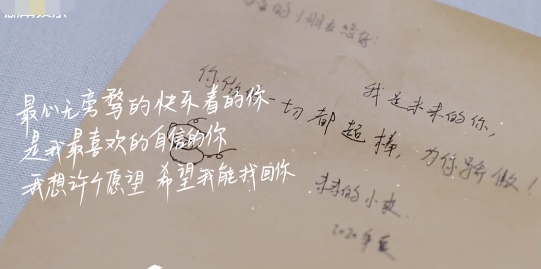 的小朋友您好:
我是未来的你,
你做的一切都超棒,为你骄傲!
未来的小
2020年夏
最心无旁骛的快乐着的你
是我最喜欢的自信的你
我想许个愿望 希望我能找回你